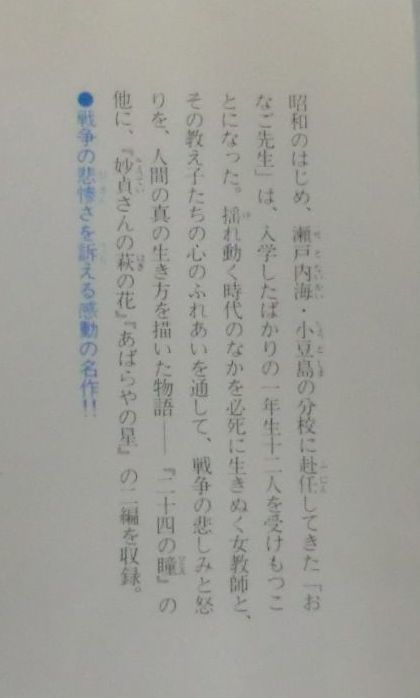 昭和のはじめ、瀬戸内海・小豆島の分校に赴任してきた「お
なご先生」は、入学したばかりの一年生十二人を受けもつこ
とになった。揺れ動く時代のなかを必死に生きぬく女教師と、
その教え子たちの心のふれあいを通して、戦争の悲しみと怒
りを、人間の真の生き方を描いた物語──『二十四の瞳』の
他に、『妙貞さんの萩の花』『あばらやの星』の二編を収録。
●戦争の悲惨さを訴える感動の名作!!